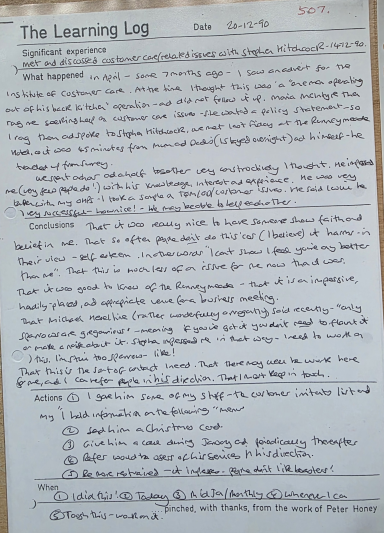 507.
The Learning Log Date 20-12-90
Significant experience
met and discussed customer care/related issues with Stephen Hitchcock - 14-12-90.
What happened in April - some 7 months ago - I saw an advert for the
Institute of Customer Care. At the time I thought this was a "one man operating
out of his back kitchen" operation - and did not follow it up.
rang me seeking help on customer care issues - she wanted a policy statement - so
I rang then and spoke to Stephen Hitchcock, we met last Friday at the Runnymede
Hotel, it was 45 minutes from Mum and Dad's (I stayed overnight) and himself - he
headed up from Surrey.
we spent a hour and a half together very constructively I thought. He impressed
me (very few people do!) with his knowledge, interest and experience. He was very
taken with my OHS. I took a sample of customer issues. He said I would be
very successful - how nice! - We may be able to help each other.
Conclusions That it was really nice to have someone show faith and
belief in me. That so often people don't do this 'cos (I believe) it harms - in
their view - self esteem. In other words "I can't show I feel you're any better
than me". That this is much less of a issue for me now than it was.
That it was good to know of the Runnymede - that it is an impressive,
handily placed, and appropriate venue for a business meeting.
That Michael Heseltine (rather wonderfully arrogantly) said recently - "only
sparrows are gregarious" - meaning if you've got it you don't need to flaunt it
or make a noise about it. Stephen impressed me in that way - I need to work on
this, I'm still too sparrow-like!
That this is the sort of contact I need. That there may well be work here
for me, and I can refer people in his direction. That I must keep in touch.
Actions ① I gave him some of my stuff - the customer initiatives list and
my "I hold information on the following" menu
② Send him a Christmas card
③ Give him a call during January and periodically thereafter
④ Refer would be users of his services in his direction.
⑤ Be more restrained - it impresses. People don't like boasters!
When
① I did this! ② Today ③ Mid Ja/monthly ④ Whenever I can
⑤ Tough this - work on it.
...pinched, with thanks, from the work of Peter Honey